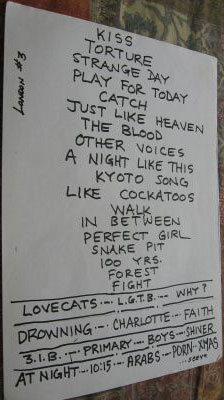 LONDON #3
KISS
TORTURE
STRANGE DAY
PLAY FOR TODAY
CATCH
JUST LIKE HEAVEN
THE BLOOD
OTHER VOICES
A NIGHT LIKE THIS
KYOTO SONG
LIKE COCKATOOS
WALK
IN BETWEEN
PERFECT GIRL
SNAKE PIT
100 YRS.
FOREST
FIGHT
LOVECATS --- L.G.T.B. --- WHY?
DROWNING --- CHARLOTTE --- FAITH
3.I.B. --- PRIMARY --- BOYS --- SHIVER
AT NIGHT --- 10:15 --- ARABS --- PORN --- XMAS